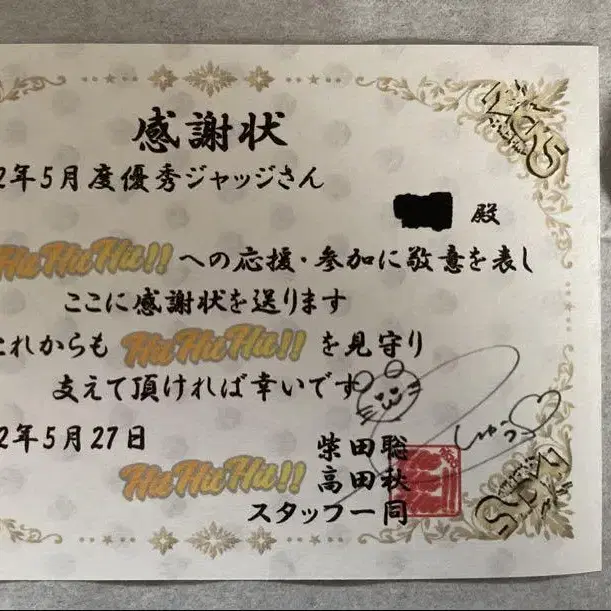 感謝状
2年5月度優秀ジャッジさん
殿
HuHuHu!!への応援・参加に敬意を表し
ここに感謝状を送ります
これからも HuHuHu!! を見守り
支えて頂ければ幸いです
2年5月27日
柴田聡
HuHuHu!! 高田秋
スタッフ一同